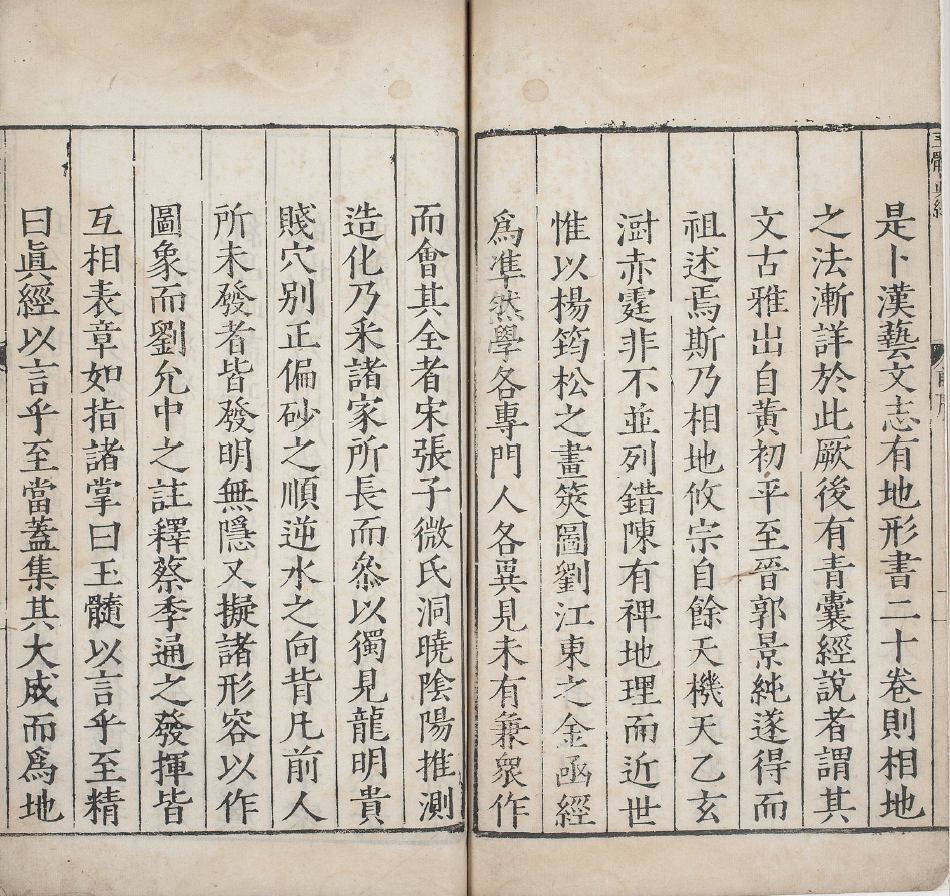 是卜漢藝文志有地形書二十卷則相地
之法漸詳於此厥後有青囊經說者謂其
文古雅出自黃初平至晉郭景純遂得而
祖述焉斯乃相地攸宗自餘天機天乙玄
澍赤霆非不並列錯陳有裨地理而近世
惟以楊筠松之畫筴圖劉江東之金函經
爲準然學各專門人各異見未有兼衆作
而會其全者宋張子微氏洞曉陰陽推測
造化乃釆諸家所長而叅以獨見龍明貴
賤穴别正偏砂之順逆水之向背凡前人
所未發者皆發明無隱又擬諸形容以作
圖象而劉允中之註釋蔡季通之發揮皆
互相表章如指諸掌曰玉髓以言乎至精
曰眞經以言乎至當蓋集其大成而爲地